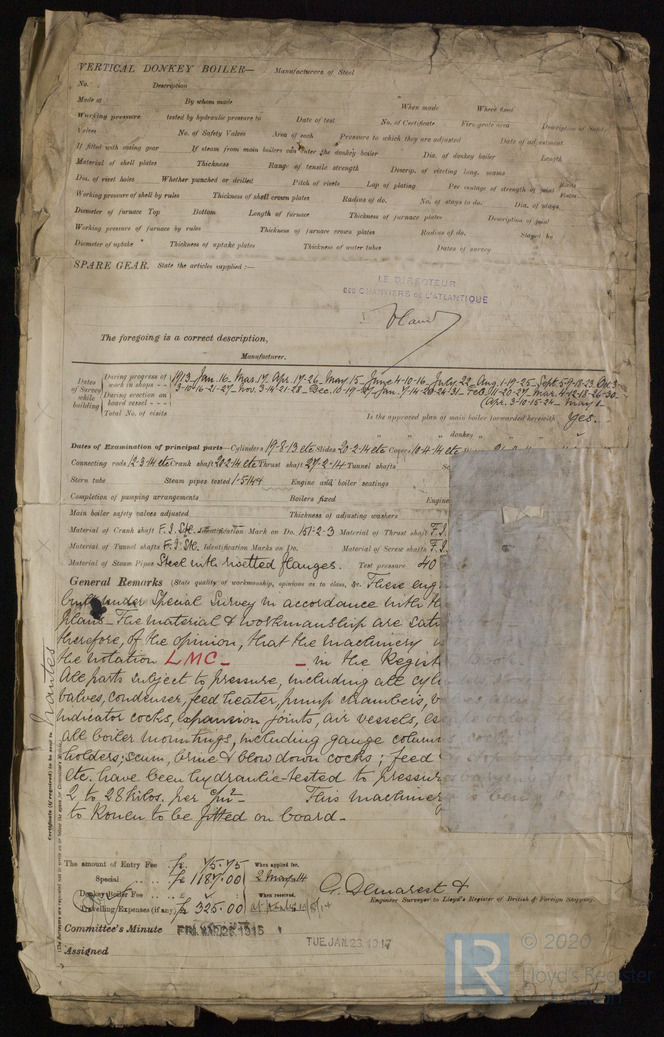 VERTICAL DONKEY BOILER— Manufacturers of Steel
No. Description
Made at By whom made When made Where fixed
Working pressure tested by hydraulic pressure to Date of test No. of Certificate Fire grate area Description of Safety
Valves No. of Safety Valves Area of each Pressure to which they are adjusted Date of adjustment
If fitted with easing gear If steam from main boilers can enter the donkey boiler Dia. of donkey boiler Length
Material of shell plates Thickness Range of tensile strength Descrip. of riveting long. seams
Dia. of rivet holes Whether punched or drilled Pitch of rivets Lap of plating Per centage of strength of joint Rivets Plates
Working pressure of shell by rules Thickness of shell crown plates Radius of do. No. of stays to do. Dia. of stays
Diameter of furnace Top Bottom Length of furnace Thickness of furnace plates Description of joint
Working pressure of furnace by rules Thickness of furnace crown plates Radius of do. Stayed by
Diameter of uptake Thickness of uptake plates Thickness of water tubes Dates of survey
SPARE GEAR. State the articles supplied :—
LE DIRECTEUR
DES CHANTIERS DE L'ATLANTIQUE
The foregoing is a correct description,
Manufacturer.
Dates of Survey while building
During progress of work in shops - - 1913 Jan. 16 Mar. 17 Apr. 17-26 May. 15 June 4-10-16 July. 22 Aug. 1-19-25 Sept. 5-9-18-23 Oct 3
During erection on board vessel - - -
Total No. of visits
Is the approved plan of main boiler forwarded herewith Yes.
" " donkey "
Dates of Examination of principal parts—Cylinders 19-8-13 etc Slides 20-2-14 etc Covers 10-4-14 etc
Connecting rods 12-3-14 etc Crank shaft 20-2-14 etc Thrust shaft 27-2-14 Tunnel shafts
Stern tube Steam pipes tested 1-5-14 Engine and boiler seatings
Completion of pumping arrangements Boilers fixed Engine
Main boiler safety valves adjusted Thickness of adjusting washers
Material of Crank shaft F. I. Stl. Identification Mark on Do. 157-2-3 Material of Thrust shaft F. I.
Material of Tunnel shafts F. I. Stl. Identification Marks on Do. Material of Screw shafts F. I.
Material of Steam Pipes Steel with rivetted flanges. Test pressure 40
General Remarks (State quality of workmanship, opinions as to class, &c. These eng
built under Special Survey in accordance with th
plans_ The material & workmanship are satis
therefore, of the opinion, that the machinery
the notation LMC_ _ in the Regist
All parts subject to pressure, including all cyl
valves, condenser, feed heater, pump chambers,
indicator cocks, expansion joints, air vessels,
all boiler mountings, including gauge columns
holders; scum, brine & blow down cocks; feed
etc. have been hydraulic-tested to pressure
2 to 28 Kilos. per c/m²_ This machinery
to Rouen to be fitted on board_
Certificate (if required) to be sent to Nantes
The amount of Entry Fee .. fr. 75.75 When applied for,
Special .. .. fr 1187.00 2 May 14
Donkey Boiler Fee .. .. When received,
Travelling Expenses (if any) fr 325.00
G. Demarest &
Engineer Surveyor to Lloyd's Register of British & Foreign Shipping.
Committee's Minute FRI. MAR 26 1915
TUE. JAN. 23. 1917
Assigned
LR © 2020
Lloyd's Register
Foundation